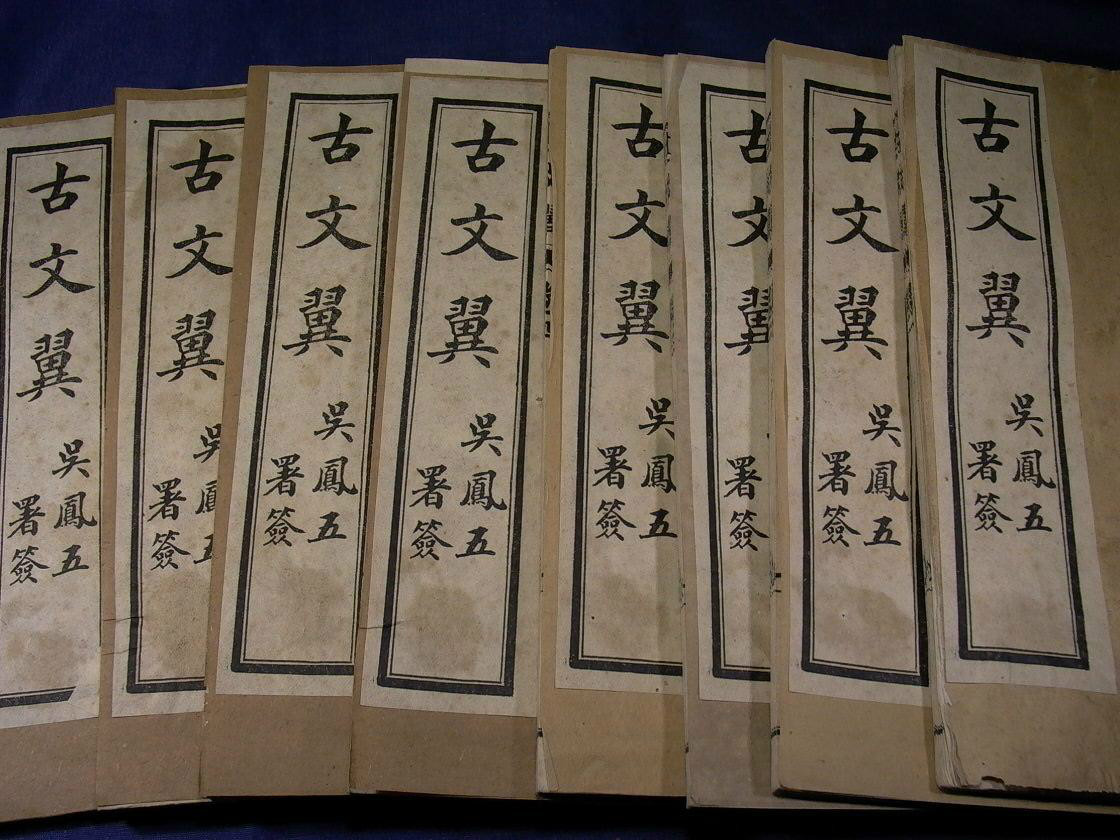 古文翼
吳鳳五
署簽
古文翼
吳鳳五
署簽
古文翼
吳鳳五
署簽
古文翼
吳鳳五
署簽
古文翼
吳鳳五
署簽
古文翼
署簽
古文翼
吳鳳五
署簽
古文翼
吳鳳五
署簽